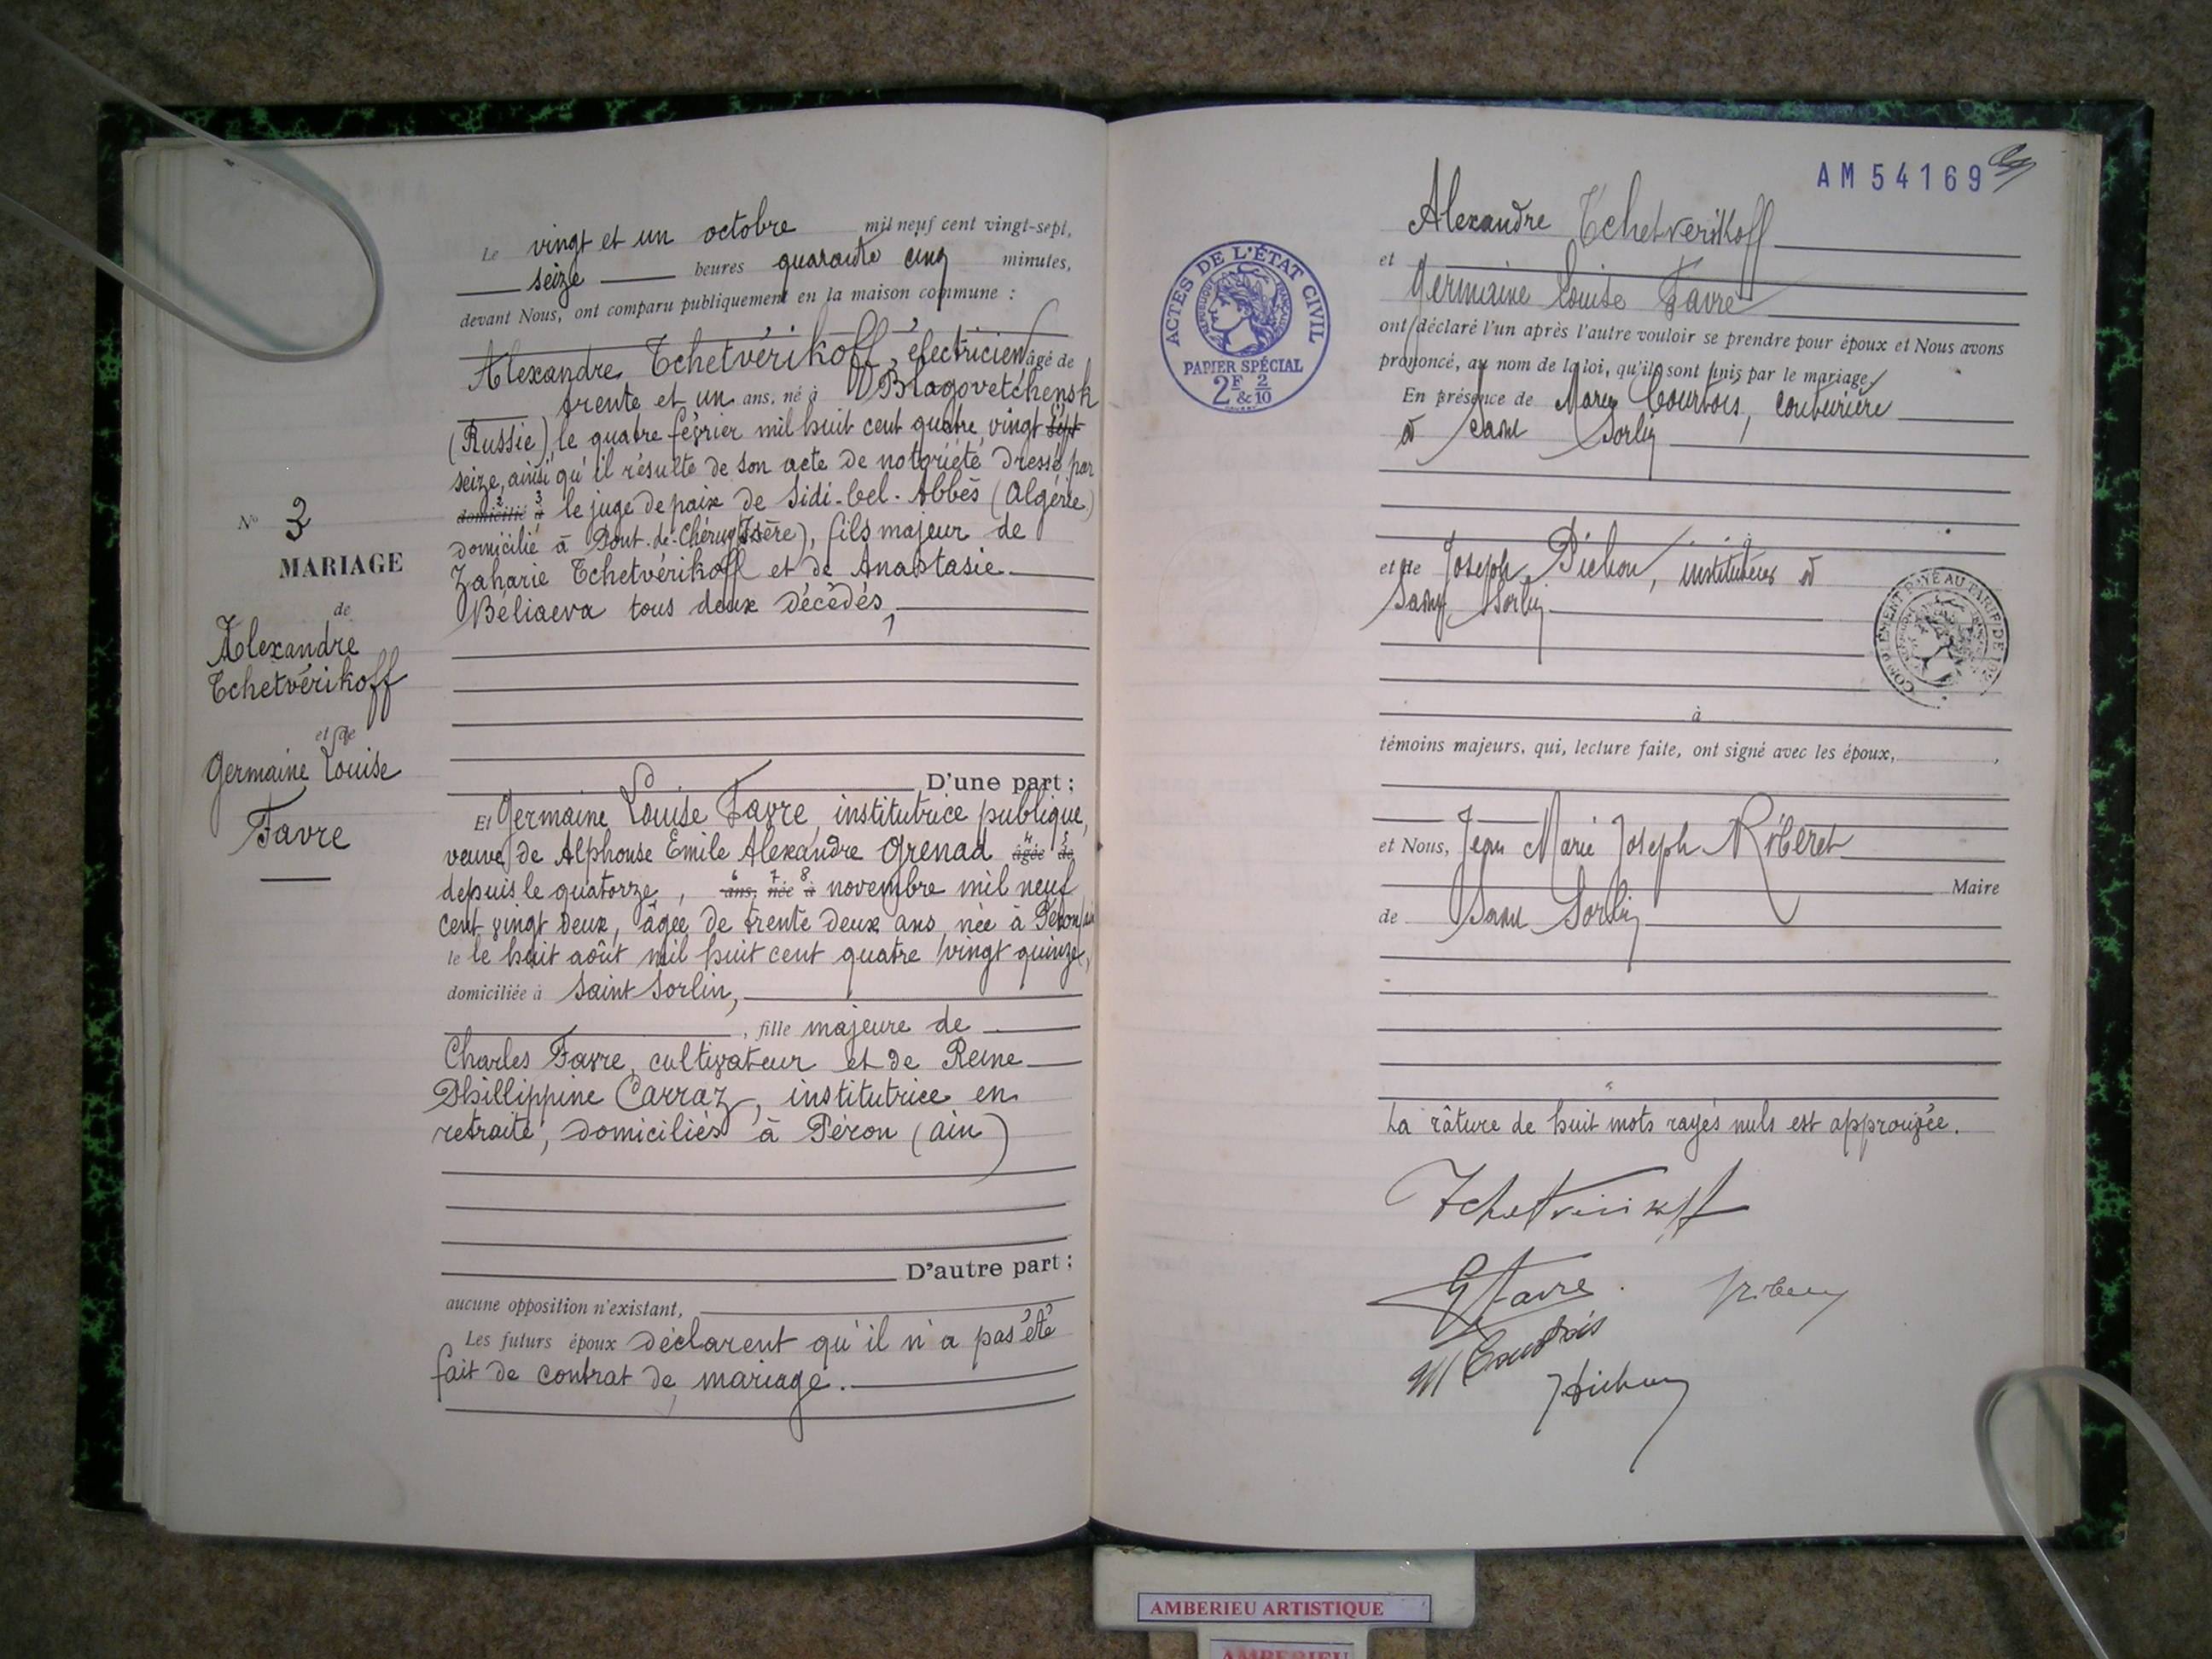 N° 3
MARIAGE
de
Alexandre
Tchetvérikoff
et de
Germaine Louise
Favre
Le vingt et un octobre mil neuf cent vingt-sept,
seize heures quarante cinq minutes,
devant Nous, ont comparu publiquement en la maison commune :
Alexandre Tchetvérikoff, électricien âgé de
trente et un ans, né à Blagovetchensk
(Russie), le quatre février mil huit cent quatre vingt sept
seize, ainsi qu'il résulte de son acte de notoriété dressé par
domicilié à le juge de paix de Sidi-bel-Abbès (Algérie)
domicilié à Pont-de-Chéruy (Isère), fils majeur de
Zaharie Tchetvérikoff et de Anastasie
Béliaeva tous deux décédés,
D'une part ;
Et Germaine Louise Favre, institutrice publique,
veuve de Alphonse Emile Alexandre Grenad âgée de
depuis le quatorze, ans, née à novembre mil neuf
cent vingt deux, âgée de trente deux ans, née à Péron
le le huit août mil huit cent quatre vingt quinze,
domiciliée à Saint Sorlin,
, fille majeure de
Charles Favre, cultivateur et de Reine
Phillippine Carraz, institutrice en
retraite, domiciliés à Péron (ain)
D'autre part ;
aucune opposition n'existant,
Les futurs époux déclarent qu'il n'a pas été
fait de contrat de mariage.
AM54169
ACTES DE L'ÉTAT CIVIL
RÉPUBLIQUE FRANÇAISE
PAPIER SPÉCIAL
2F & 2/10
Alexandre Tchetverikoff
et
Germaine Louise Favre
ont déclaré l'un après l'autre vouloir se prendre pour époux et Nous avons
prononcé, au nom de la loi, qu'ils sont unis par le mariage.
En présence de Marie Courtois, couturière
à Saint Sorlin
et de Joseph Pichon, instituteur à
Saint Sorlin
à
témoins majeurs, qui, lecture faite, ont signé avec les époux,
et Nous, Jean Marie Joseph
Maire
de Saint Sorlin
La râture de huit mots rayés nuls est approuvée.
Tchetverikoff
G Favre
M Courtois
J Pichon
AMBERIEU ARTISTIQUE
AMBERIEU